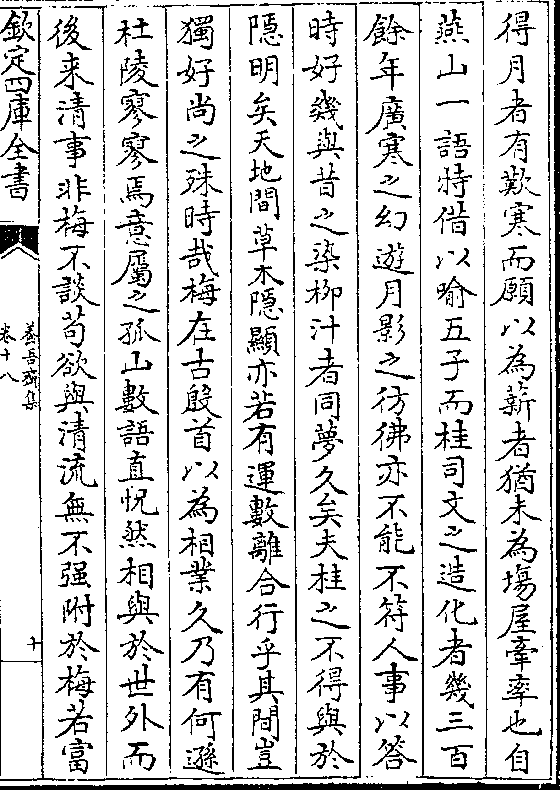 得月者有歎寒而願以為薪者猶未為塲屋牽率也自
燕山一語特借以喻五子而桂司文之造化者幾三百
餘年廣寒之幻遊月影之彷彿亦不能不符人事以答
時好幾與昔之染柳汁者同夢久矣夫桂之不得與於
隠明矣天地間草木隠顯亦若有運數離合行乎其間豈
獨好尚之殊時哉梅在古殷首以為相業久乃有何遜
杜陵寥寥焉意屬之孤山數語直恍然相與於世外而
後来清事非梅不談苟欲與清流無不强附於梅若富
欽定四庫全書
養吾齋集
卷十八
十